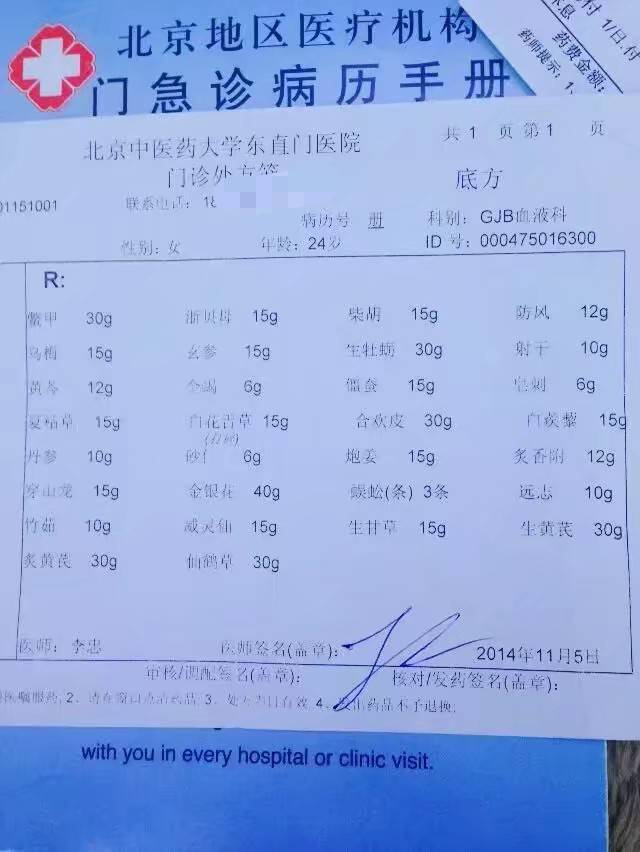 北京地区医疗机构
门急诊病历手册
付 1/日,付
休息
药费金额:
药师提示: 1、
北京中医药大学东直门医院
共 1 页 第 1 页
门诊处方笺
底方
01151001
联系电话: 18
病历号 册
科别: GJB血液科
性别: 女 年龄: 24岁
ID 号: 000475016300
R:
鳖甲 30g 浙贝母 15g 柴胡 15g 防风 12g
乌梅 15g 玄参 15g 生牡蛎 30g 射干 10g
黄芩 12g 全蝎 6g 僵蚕 15g 皂刺 6g
夏枯草 15g 白花舌草 15g 合欢皮 30g 白蒺藜 15g
丹参 10g 砂仁 6g 炮姜 15g 炙香附 12g
穿山龙 15g 金银花 40g 蜈蚣(条) 3条 远志 10g
竹茹 10g 威灵仙 15g 生甘草 15g 生黄芪 30g
炙黄芪 30g 仙鹤草 30g
医师: 李忠 医师签名(盖章): 2014年11月5日
审核/调配签名(盖章): 核对/发药签名(盖章):
医嘱服药, 2、请在窗口点清药品, 3、处方当日有效, 4、发出药品不予退换;
with you in every hospital or clinic visit.